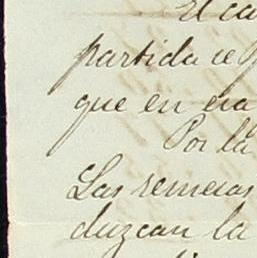 El ca
partida se
que en era
Por la
Las remesas
duzcan la